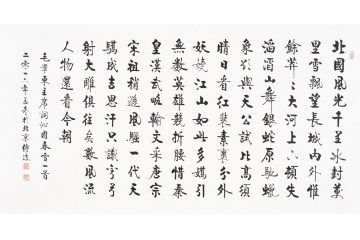 北國風光千里冰封萬
里雪飄望長城內外惟
餘莽〻大河上下頓失
滔滔山舞銀蛇原馳蠟
象欲與天公試比高須
晴日看紅裝素裹分外
妖嬈江山如此多嬌引
無數英雄競折腰惜秦
皇漢武略輸文采唐宗
宋祖稍遜風騷一代天
驕成吉思汗只識彎弓
射大雕俱往矣數風流
人物還看今朝
毛澤東主席詞沁園春雪一首
二零一八年於北京